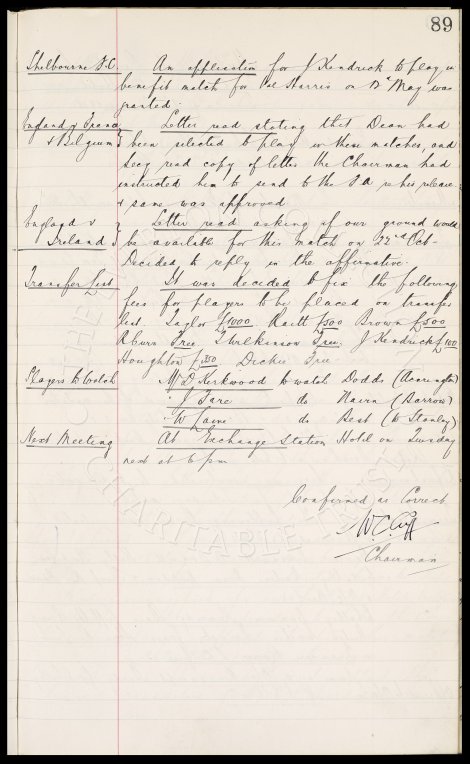 89
Shelbourne F.C. An application for J Kendrick to play in
benefit match for Val Harris on 12th May was
granted.
England v France Letter read stating that Dean had
& Belgium been selected to play in these matches, and
Secy read copy of letter the Chairman had
instructed him to send to the F.A. re his release
& same was approved
England v Letter read asking if our ground would
Ireland be available for this match on 22nd Oct-
Decided to reply in the affirmative.
Transfer List It was decided to fix the following
fees for players to be placed on transfer
list. Taylor £1000 Raitt £500 Brown £500
Free, Free. J Kendrick £100
Houghton £350 Dickie Free.
Players to Watch Mr D Kirkwood to watch Dodds (Accrington)
" J Fare do Nairn (Barrow)
" W do Best (W Stanley)
Next Meeting At Exchange Station Hotel on Tuesday
next at 6pm
Confirmed as Correct
W.C. Cuff
Chairman
THE
CHARITABLE TRUST